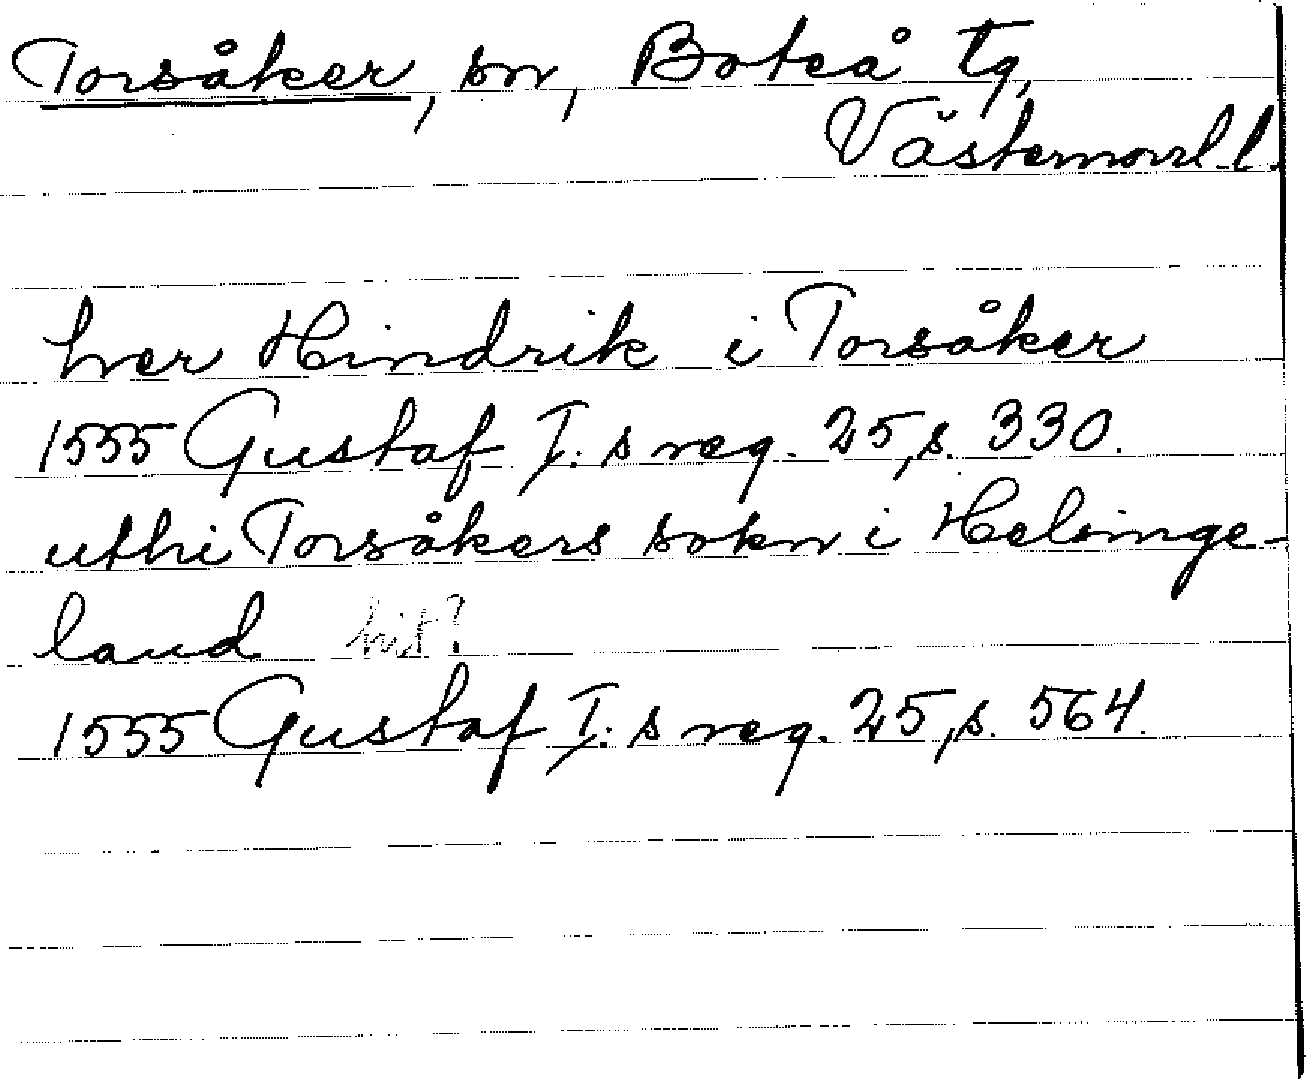 Torsåker, sn, Boteå tg,
Västernorrl. l.
her Hindrik i Torsåker
1555 Gustaf I:s reg. 25, s. 330.
uthi Torsåkers sokn i Helsinge-
land hit?
1555 Gustaf I:s reg. 25, s. 564.